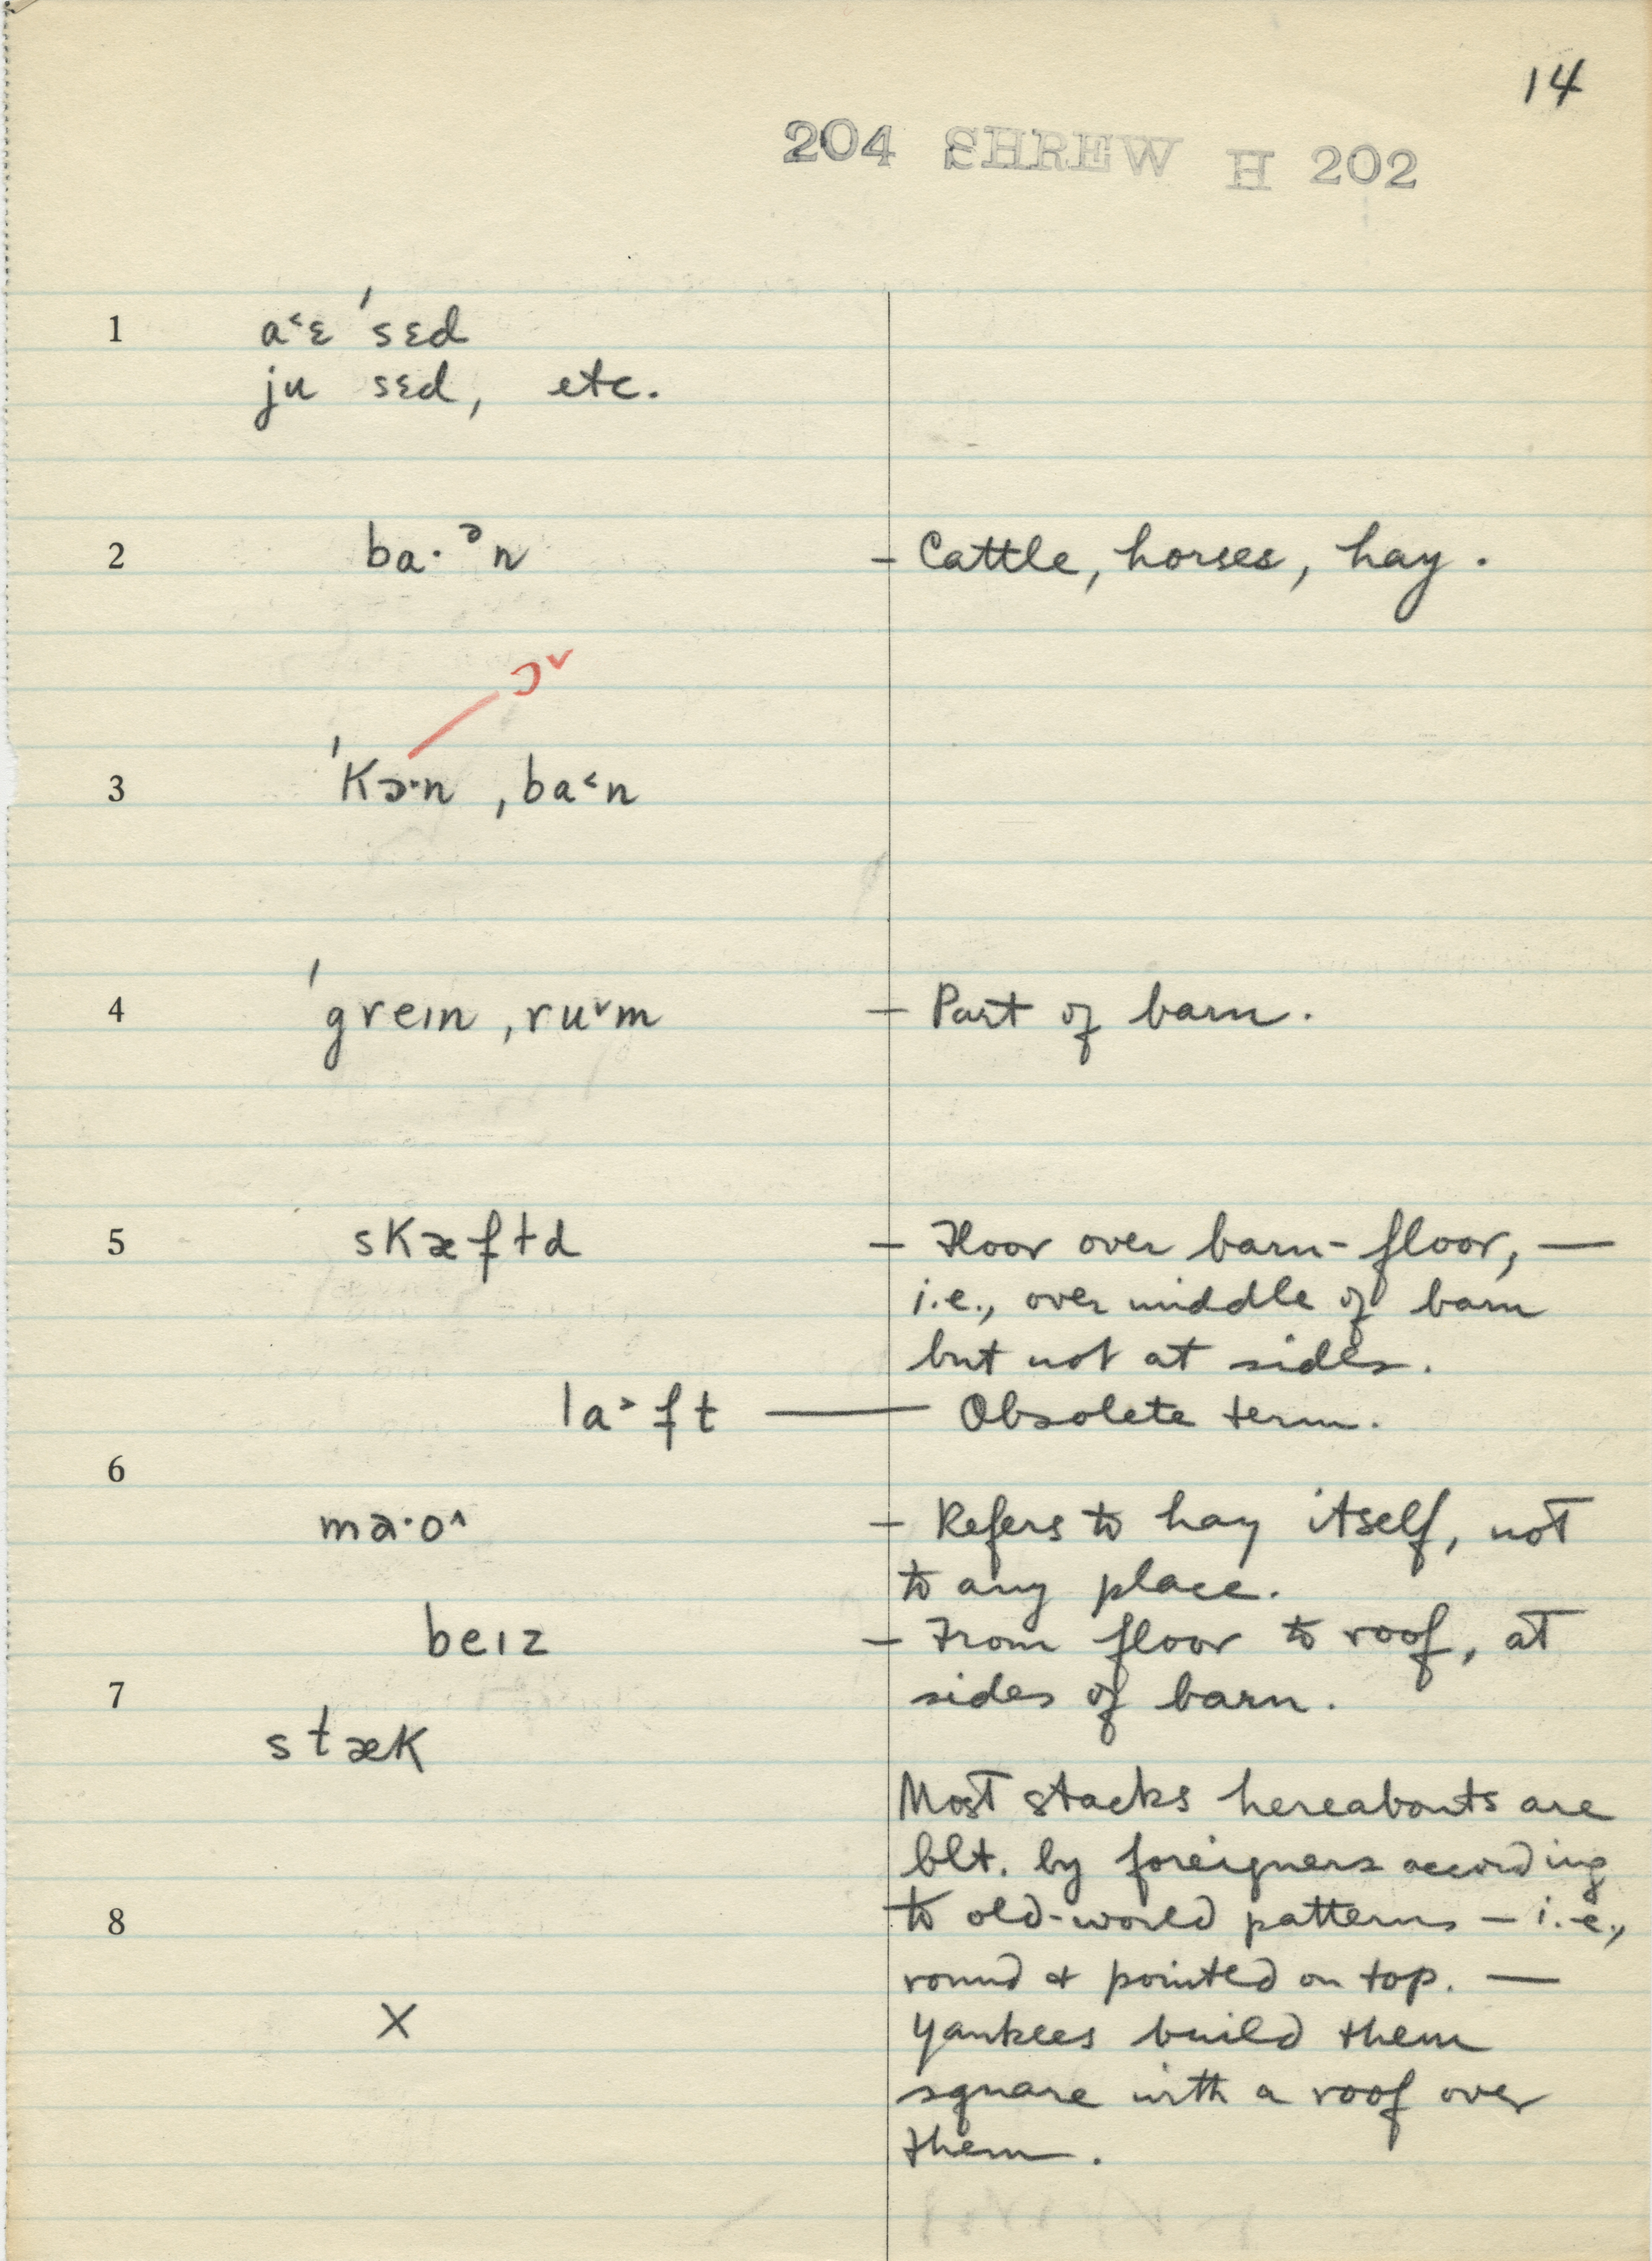 14
204 SHREW H 202
1 a˂ɛ ˈsɛd
ju sɛd, etc.
2 ba·ᵊn – Cattle, horses, hay.
ɔ˅
3 ˈkɔ·n ˌba˂n
4 ˈgreɪn ˌru˅m – Part of barn.
5 skæftd – Floor over barn-floor, —
i.e., over middle of barn
but not at sides.
la˃ft — Obsolete term.
6
ma·o˄ – Refers to hay itself, not
to any place.
beɪz – From floor to roof, at
7 sides of barn.
stæk
Most stacks hereabouts are
blt. by foreigners according
8 to old-world patterns – i.e.,
round & pointed on top. —
X Yankees build them
square with a roof over
them.